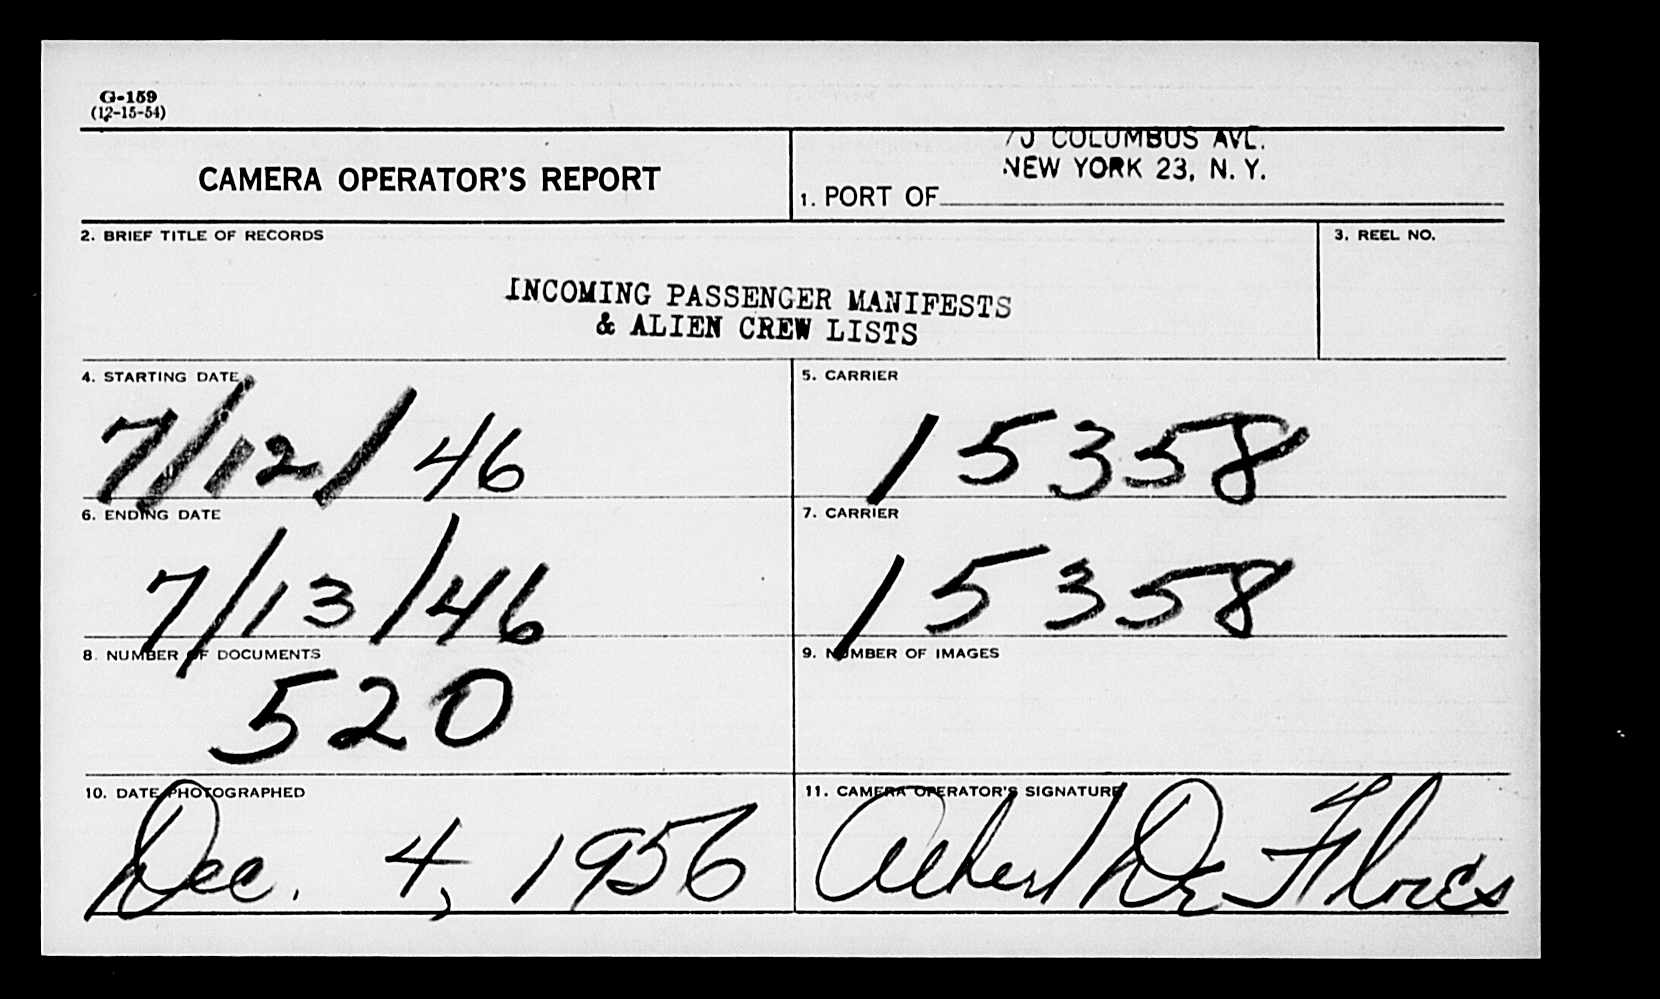 G-159
(12-15-54)
CAMERA OPERATOR'S REPORT
COLUMBUS AVE.
NEW YORK 23, N. Y.
1. PORT OF
2. BRIEF TITLE OF RECORDS
3. REEL NO.
INCOMING PASSENGER MANIFESTS
& ALIEN CREW LISTS
4. STARTING DATE
7/12/46
5. CARRIER
15358
6. ENDING DATE
7/13/46
7. CARRIER
15358
8. NUMBER OF DOCUMENTS
520
9. NUMBER OF IMAGES
10. DATE PHOTOGRAPHED
Dec. 4, 1956
11. CAMERA OPERATOR'S SIGNATURE
Albert De Flores